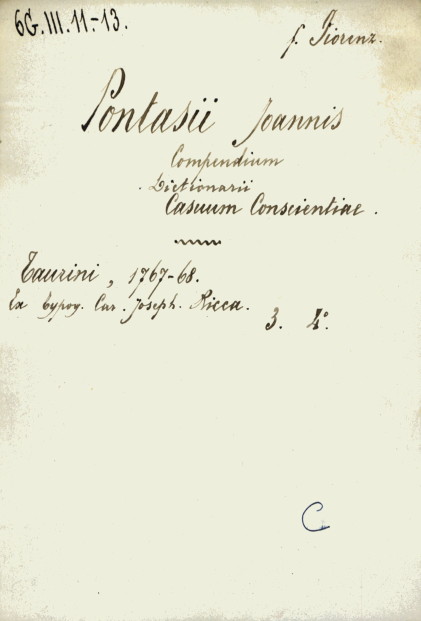 6G.III.11.-13.
f. Fiorenz.
Pontasii Joannis
Compendium
Dictionarii
Casuum Conscientiae.
Taurini, 1767-68.
Ex typog. Car. Joseph. Ricca.
3. 4°.
C